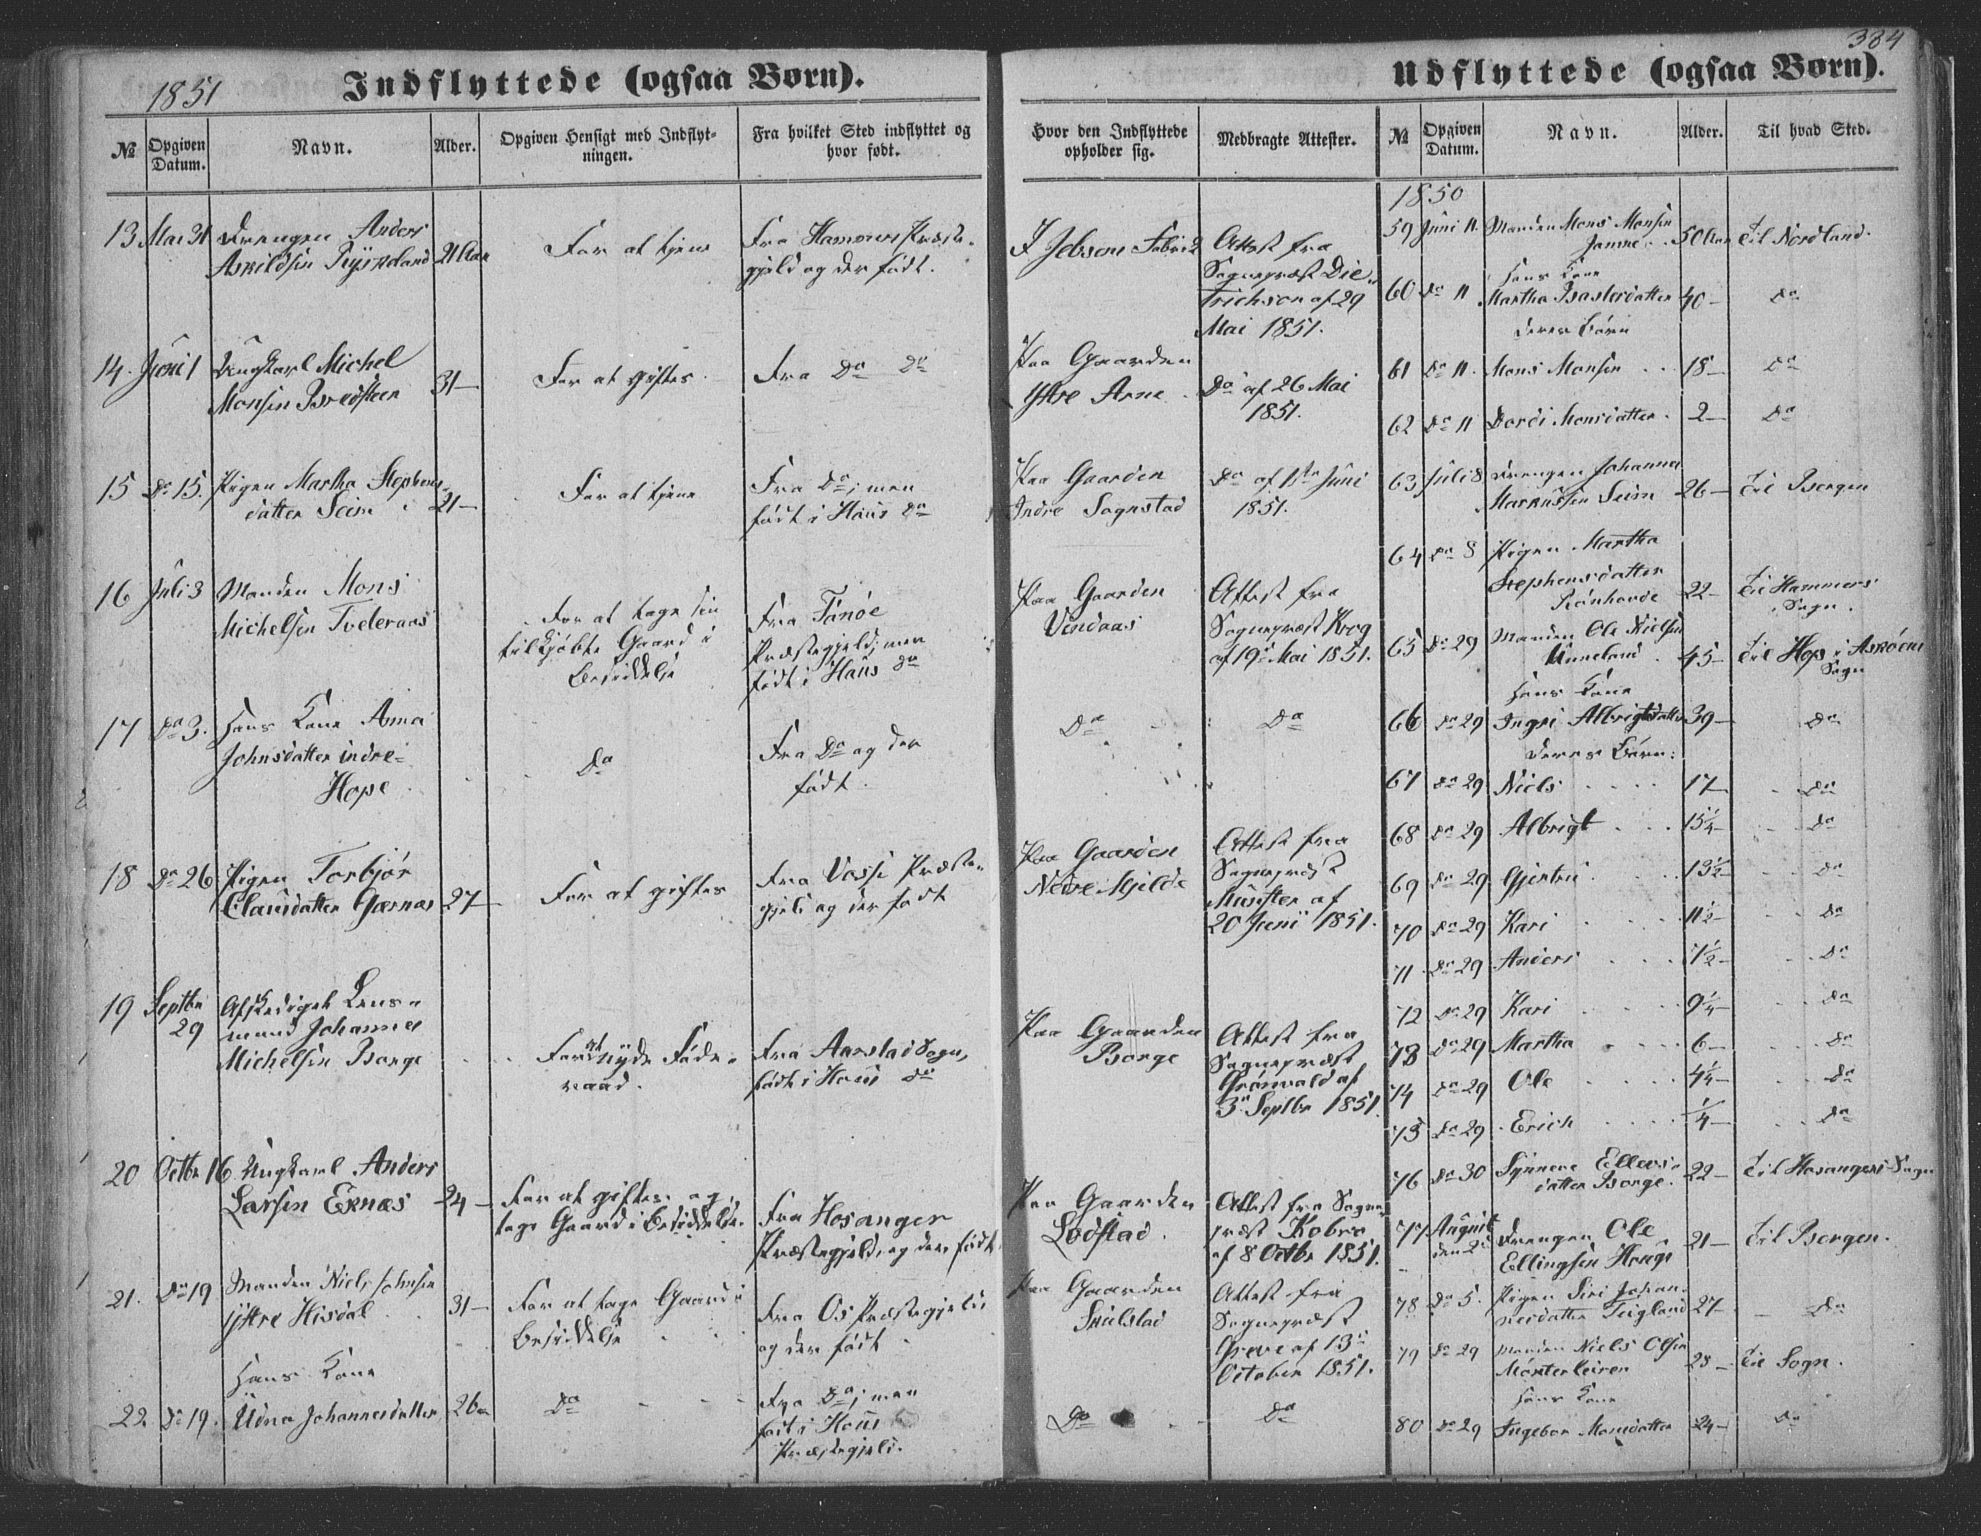 334
1851
Indflyttede (ogsaa Børn).
№
Opgiven Datum.
Navn.
Alder.
Opgiven Hensigt med Indflyt-
ningen.
Fra hvilket Sted indflyttet og
hvor født.
Hvor den Indflyttede
opholder sig.
Medbragte Attester.
13 Mai 31 Drengen Anders 21 Aar For at tjene Fra Hammers Præste-
Askildsen gjeld og der født.
I Jebsens Fabrik Attest fra
Sognepræst Die-
trichson af 29
Mai 1851.
14. Juni 1 Ungkarl Michel
Monsen Bredsteen 31 — For at giftes. Fra Do Do
Paa Gaarden
Ytre Arne. Do af 26 Mai
1851.
15 Do 15. Pigen Martha Stephens-
datter Seim 21 — For at tjene Fra Do; men
født i Haus Do
Paa Gaarden
Indre Sagnstad Do af 1ste Juni
1851.
16 Juli 3 Manden Mons
Michelsen Tveteraas
For at tage sin
tilkjøbte Gaard i
Besiddelse
Fra Fanøe
Præstegjeld; men
født i Haus Do
Paa Gaarden
Vindaas
Attest fra
Sognepræst Krog
af 19 Mai 1851.
17 Do 3. Hans Kone Anna
Johnsdatter indre
Hope
Do
Fra Do og der
født.
Do Do
18 Do 26 Pigen Torbjør
Clausdatter Gjernæs 27 — For at giftes
Fra Voss Præste-
gjeld og der født
Paa Gaarden
Nedre Mjelde
Attest fra
Sognepræst
Münster af
20 Juni 1851.
19 Septbr
29
Afskediget Lens-
mand Johannes
Michelsen Borge
For at nyde Føde-
raad.
Fra Aarstad Sogn,
født i Haus Do
Paa Gaarden
Borge
Attest fra
Sognepræst
Grønvold af
3 Septbr 1851.
20 Octbr 16 Ungkarl Anders
Larsen Eknæs 24 —
For at giftes og
tage Gaard i Besiddelse.
Fra Hosanger
Præstegjeld, og der født
Paa Gaarden
Lodstad.
Attest fra Sogne-
præst Kobro
af 8 Octbr 1851.
21. Do 19 Manden Niels Johnsen
Ytre Hisdal 31 —
For at tage Gaard i
Besiddelse
Fra Os Præstegjeld
og der født
Paa Gaarden
Skulstad
Attest fra
Sognepræst
Greve af 13
October 1851.
Hans Kone
22. Do 19. Udna Johannesdatter 26 — Do
Fra Do; men
født i Haus
Præstegjeld.
Do Do
Udflyttede (ogsaa Børn).
№
Opgiven Datum.
Navn.
Alder.
Til hvad Sted.
1850
59 Juni 11. Manden Mons Monsen
Janne 50 Aar Til Nordland.
Hans Kone
60 Do 11 Martha Baardsdatter 40 — Do
deres Børn
61 Do 11. Mons Monsen 18 — Do
62 Do 11 Dordi Monsdatter. 2 — Do
63 Juli 8 Drengen Johannes
Markussen Seim 26 — Til Bergen
64 Do 8 Pigen Martha
Stephensdatter
Rønhovde 22 — Til Hammers
Sogn.
65 Do 29 Manden Ole Nielsen
Unneland 45 — Til Hop i Askøens
Sogn
Hans Kone
66 Do 29 Ingri Albrigtsdatter 39 — Do
Deres Børn:
67 Do 29 Niels 17 — Do
68 Do 29 Albrigt 15¼ — Do
69 Do 29 Gjertru 13½ — Do
70 Do 29 Kari 11½ — Do
71 Do 29 Anders 7½ — Do
72 Do 29 Kari 9¼ — Do
73 Do 29 Martha 6 — Do
74 Do 29 Ole 4¼ — Do
75 Do 29 Erich ¼ — Do
76 Do 30 Synneve Ellevs-
datter Borge. 22 — Til Hosangers Sogn
77 August
den 2 Drengen Ole
Ellingsen Hauge 21 — Til Bergen.
78 Do 5. Pigen Siri Johan-
nesdatter Teigland 27 — Do
79 Do 29 Manden Niels Olsen
Mosterleiren 28 — Til Sogn.
Hans Kone
80 Do 29 Ingebor Monsdatter 24 — Do